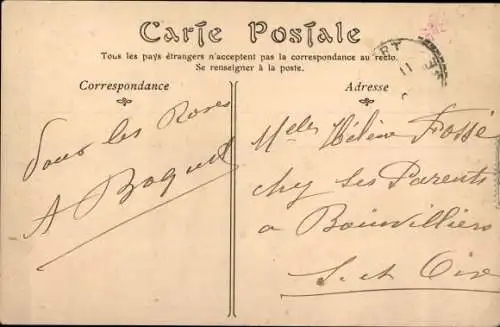 Carte Postale
Tous les pays étrangers n'acceptent pas la correspondance au recto.
Se renseigner à la poste.
Correspondance
Adresse
Tous les Roses
A Boquet
Melle Hélène Fossé
chez ses Parents
a Boinvilliers
S. et Oise